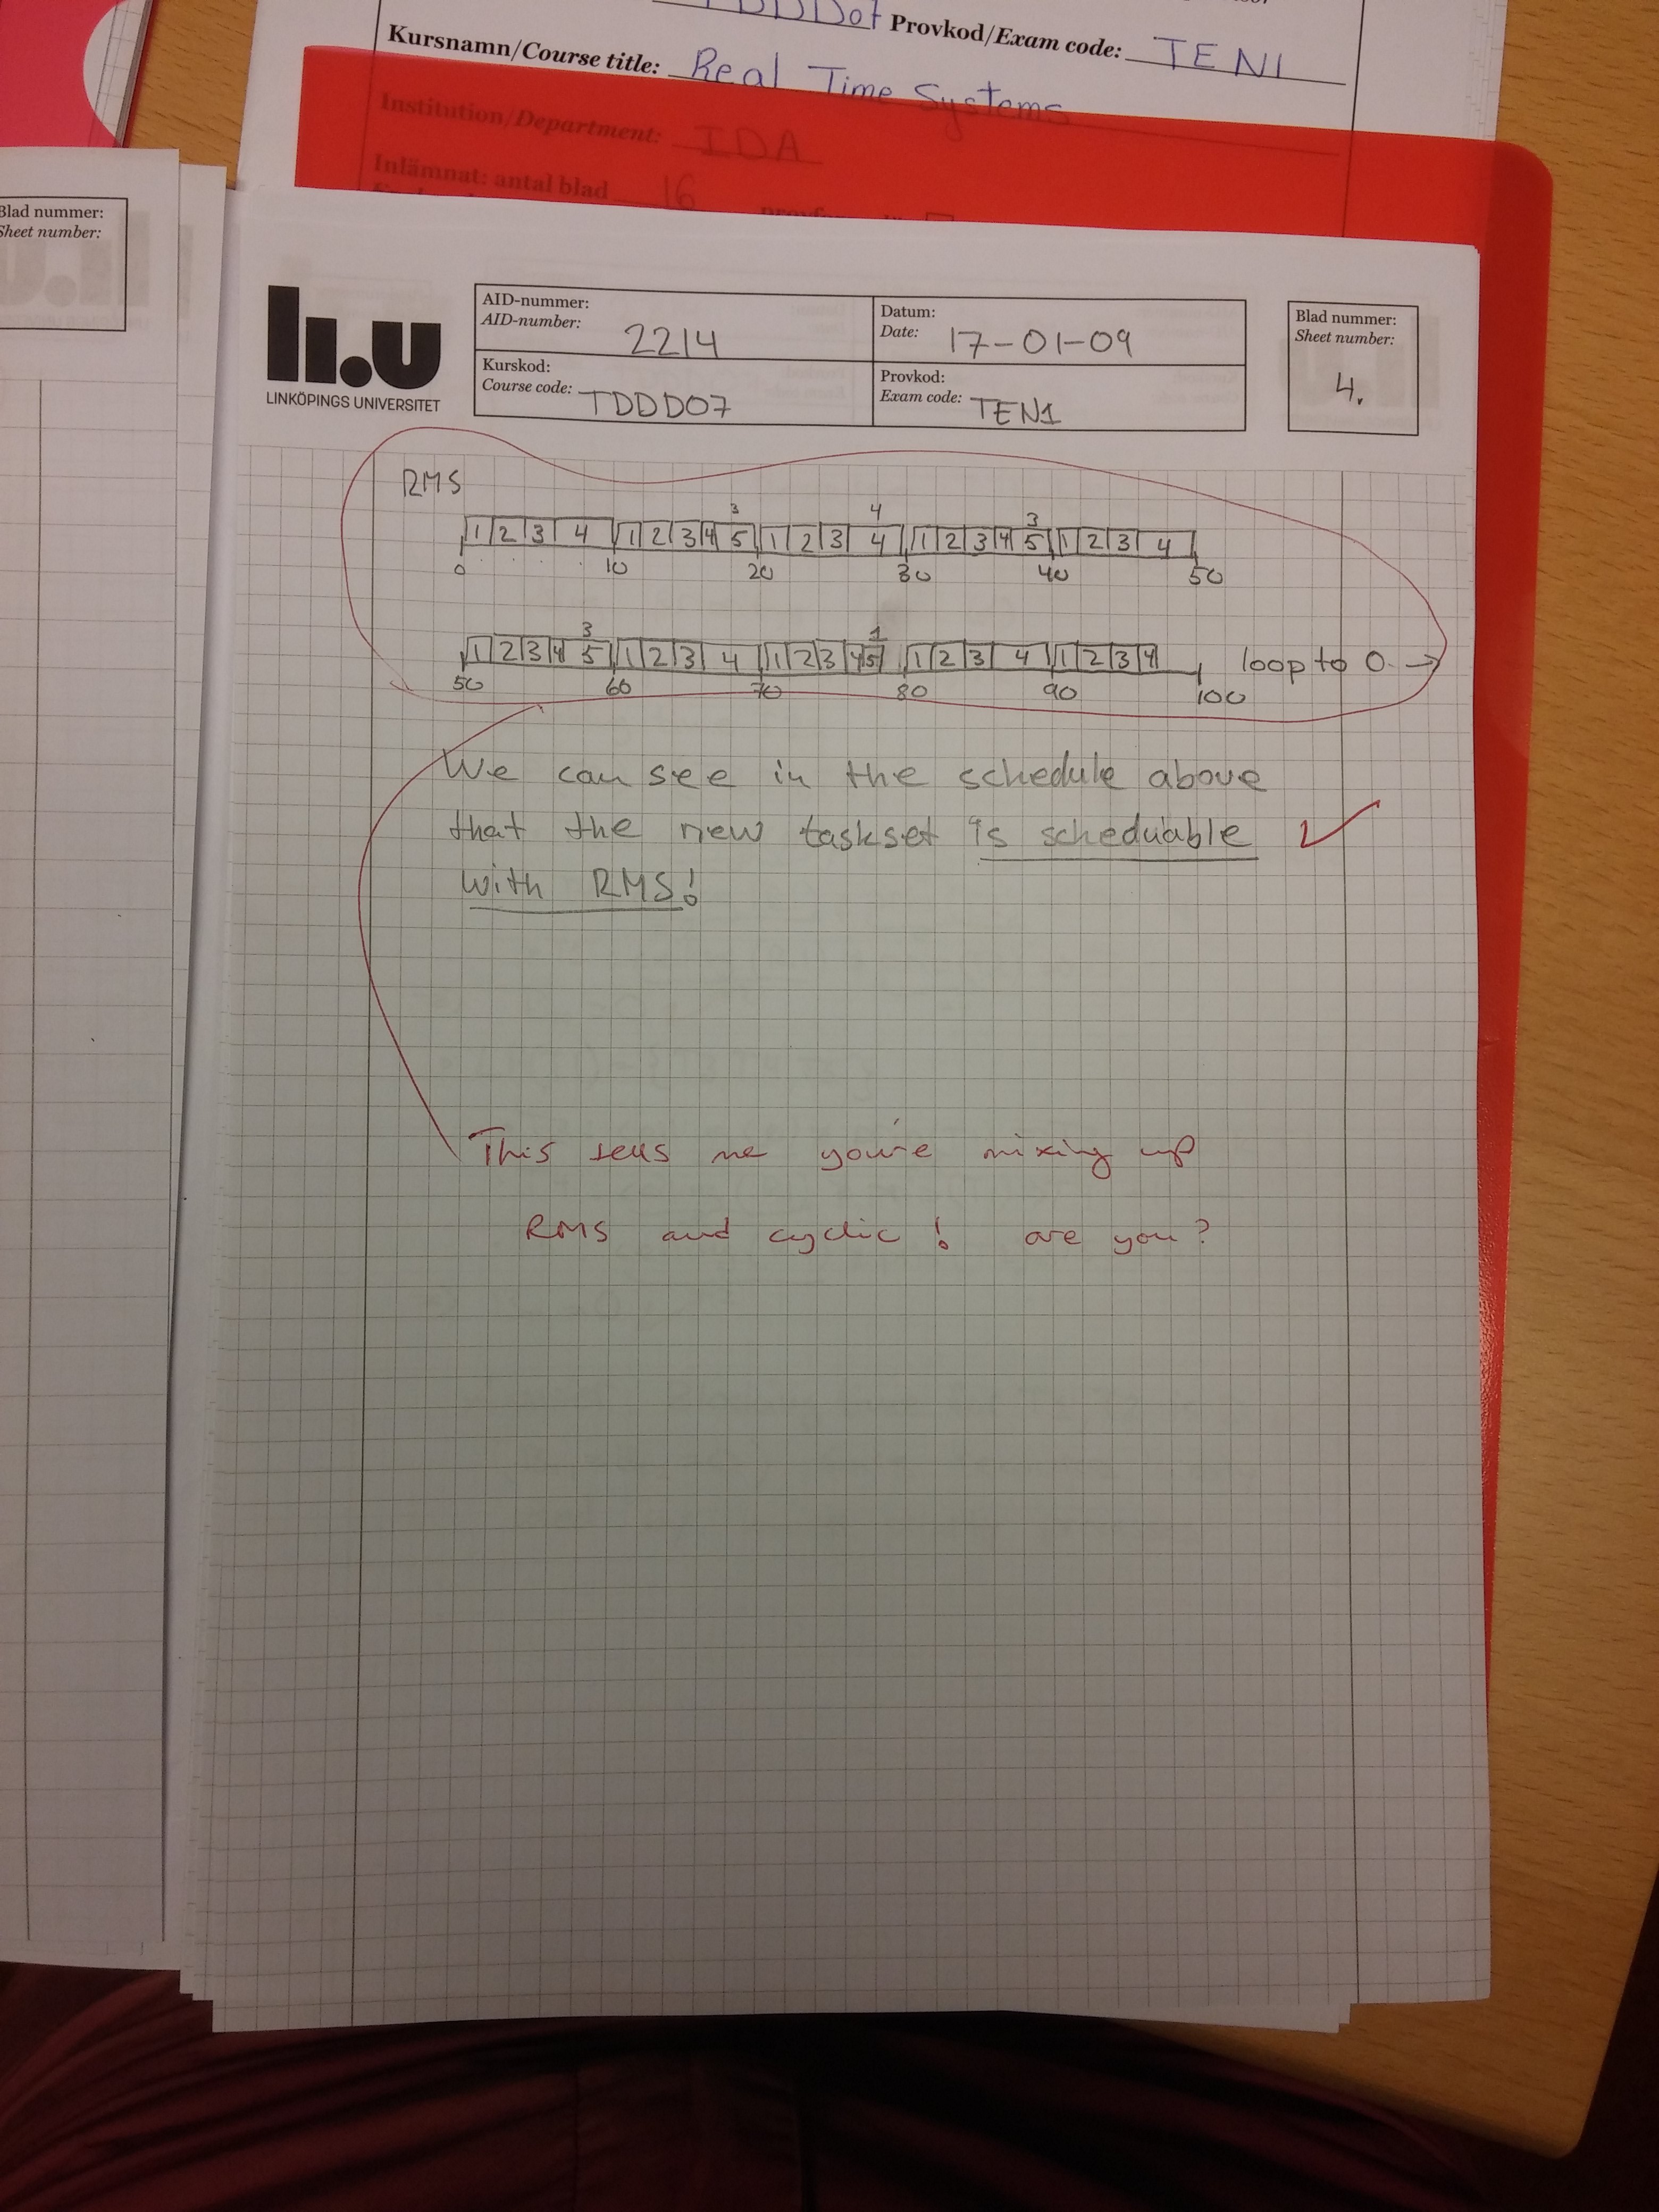 Provkod/Exam code: TEN1
Kursnamn/Course title: Real Time Systems
Institution/Department: IDA
Inlämnat: antal blad 16
Blad nummer:
Sheet number:
li.u
LINKÖPINGS UNIVERSITET
AID-nummer:
AID-number: 2214
Datum:
Date: 17-01-09
Kurskod:
Course code: TDDD07
Provkod:
Exam code: TEN1
Blad nummer:
Sheet number:
4.
RMS
3 4 3
1 2 3 4 1 2 3 4 5 1 2 3 4 1 2 3 4 5 1 2 3 4
0 10 20 30 40 50
3 1
1 2 3 4 5 1 2 3 4 1 2 3 4 5 1 2 3 4 1 2 3 4 loop to 0 →
50 60 70 80 90 100
We can see in the schedule above
that the new taskset is scheduable
with RMS!
This tells me you're mixing up
RMS and cyclic! are you?